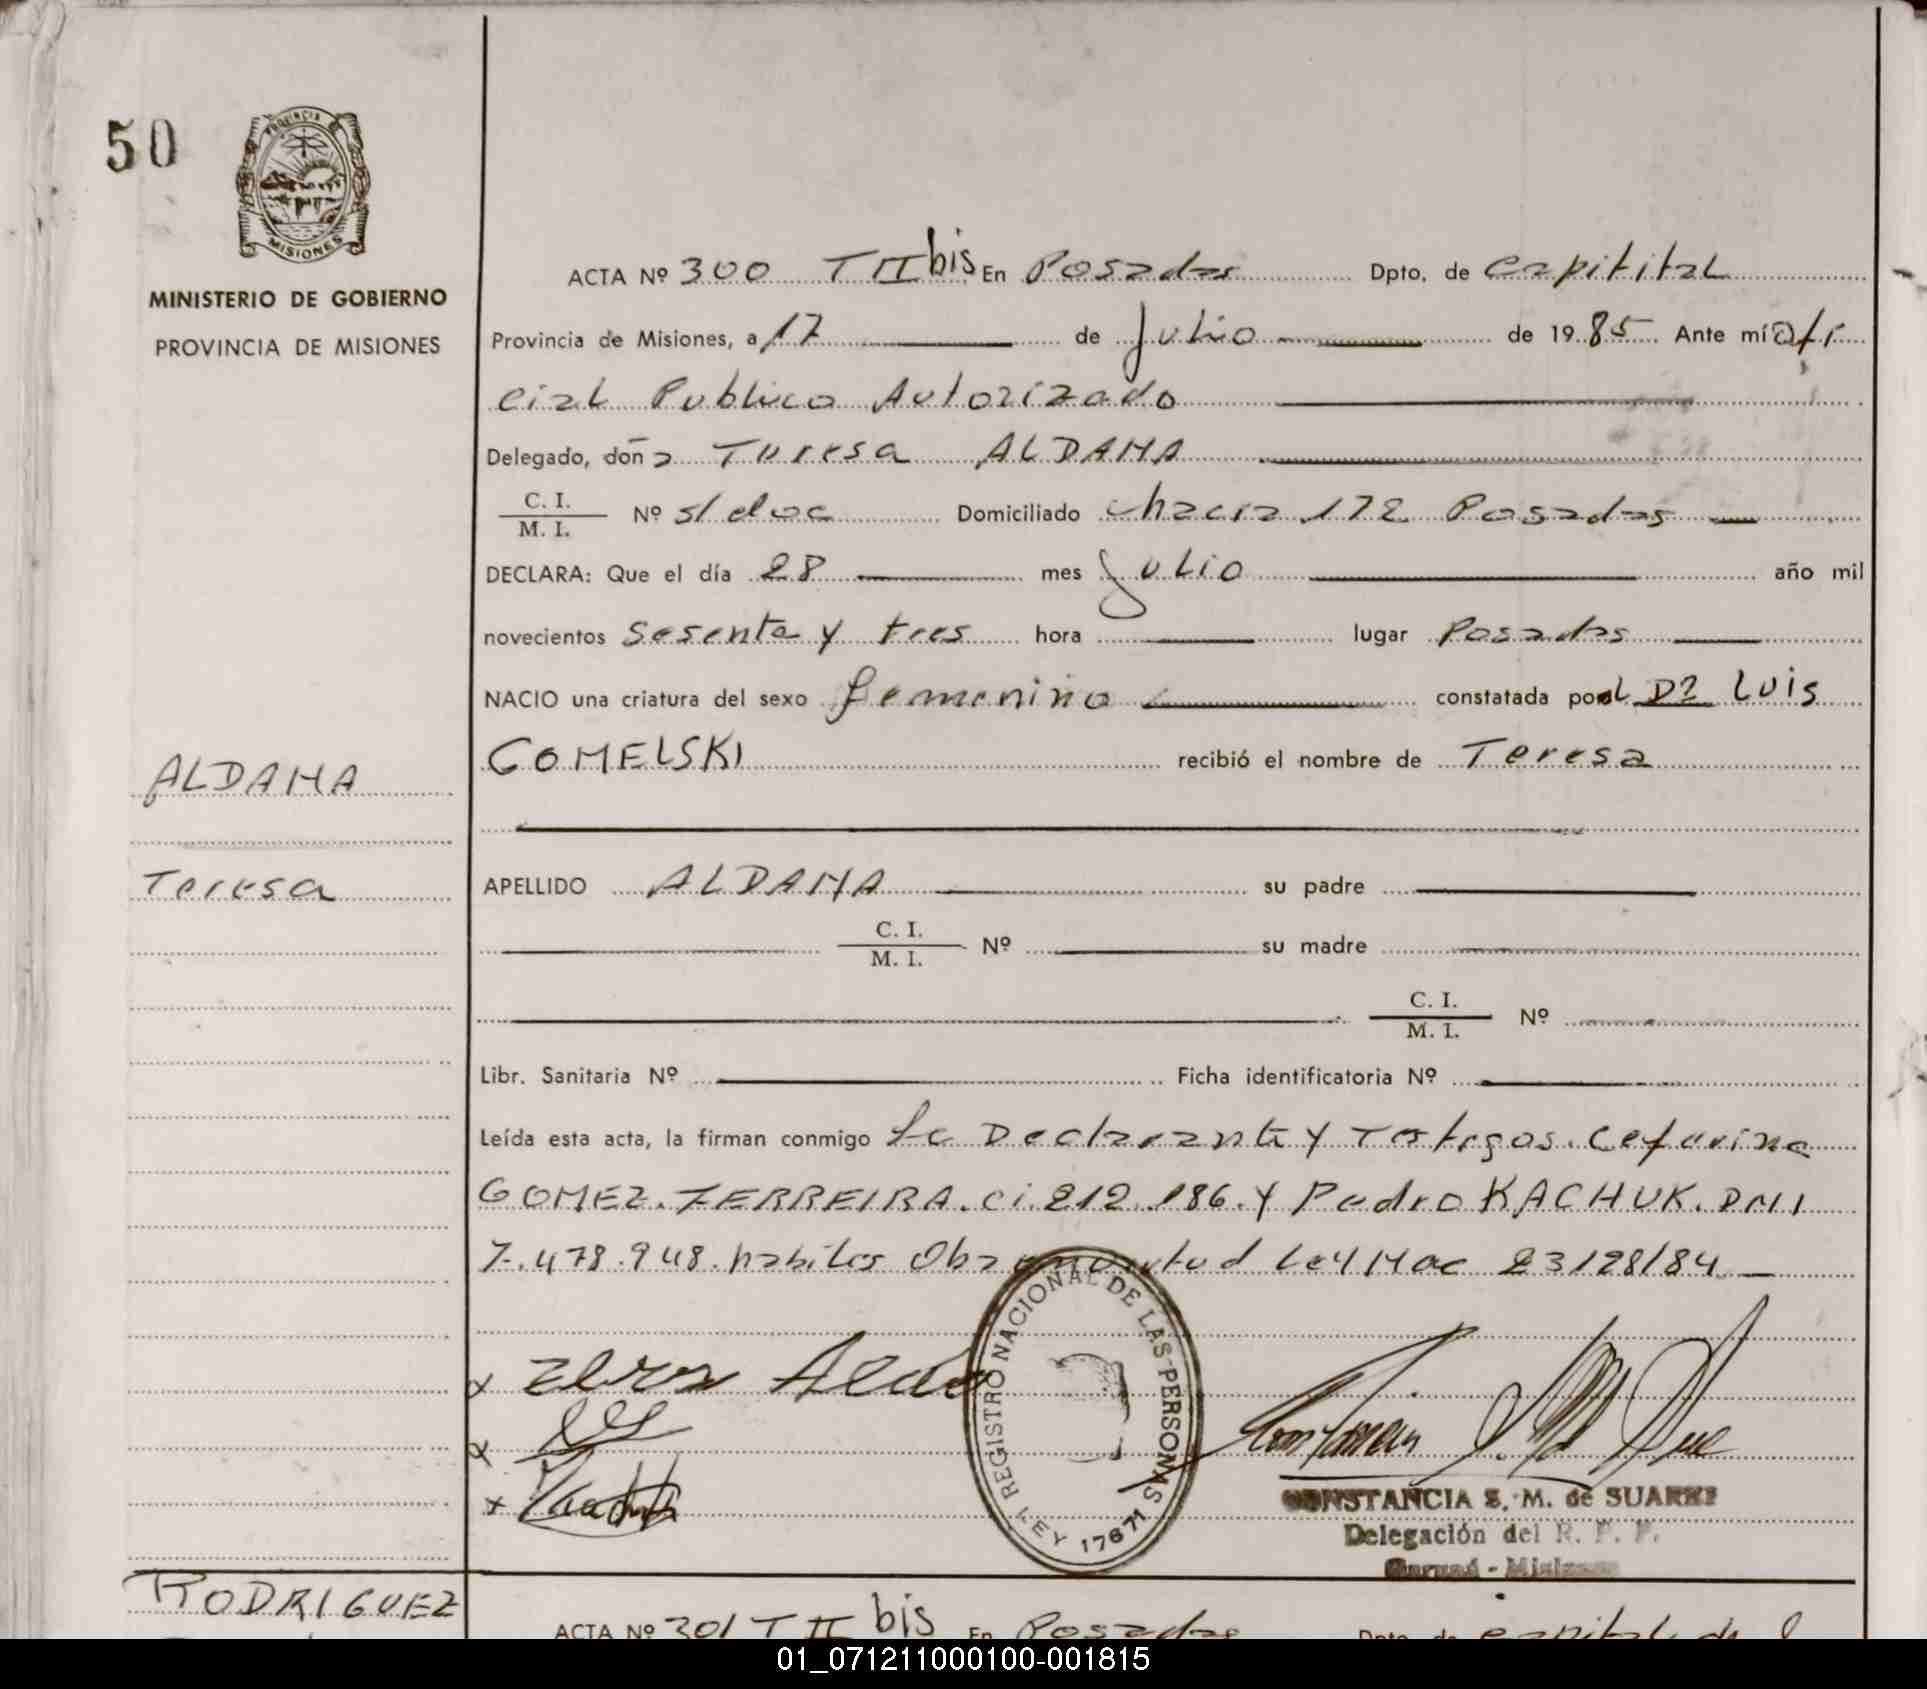 50
PROVINCIA
MISIONES
MINISTERIO DE GOBIERNO
PROVINCIA DE MISIONES
ACTA Nº 300 T II bis En Posadas Dpto. de capitital
Provincia de Misiones, a 17 de Julio de 1985 Ante mí Ofi
cial Publico Autorizado
Delegado, doña Teresa ALDAMA
C. I.
M. I. Nº s/doc Domiciliado chacra 172 Posadas
DECLARA: Que el día 28 mes Julio año mil
novecientos sesenta y tres hora lugar Posadas
NACIO una criatura del sexo femenino constatada por el Dr Luis
GOMELSKI recibió el nombre de Teresa
ALDAMA
Teresa
APELLIDO ALDAMA su padre
C. I.
M. I. Nº su madre
C. I.
M. I. Nº
Libr. Sanitaria Nº Ficha identificatoria Nº
Leída esta acta, la firman conmigo La Declarante y Testigos. Ceferina
GOMEZ. FERREIRA. ci. 212.186. y Pedro KACHUK. DNI
7.478.948. habiles Ley Nac 23128/84
REGISTRO NACIONAL DE LAS PERSONAS
LEY 17671
CONSTANCIA S. M. de SUAREZ
Delegación del R. P. P.
Garupá - Misiones
RODRIGUEZ
ACTA Nº 301 T II bis En Posadas Dpto. de capital de
01_071211000100-001815